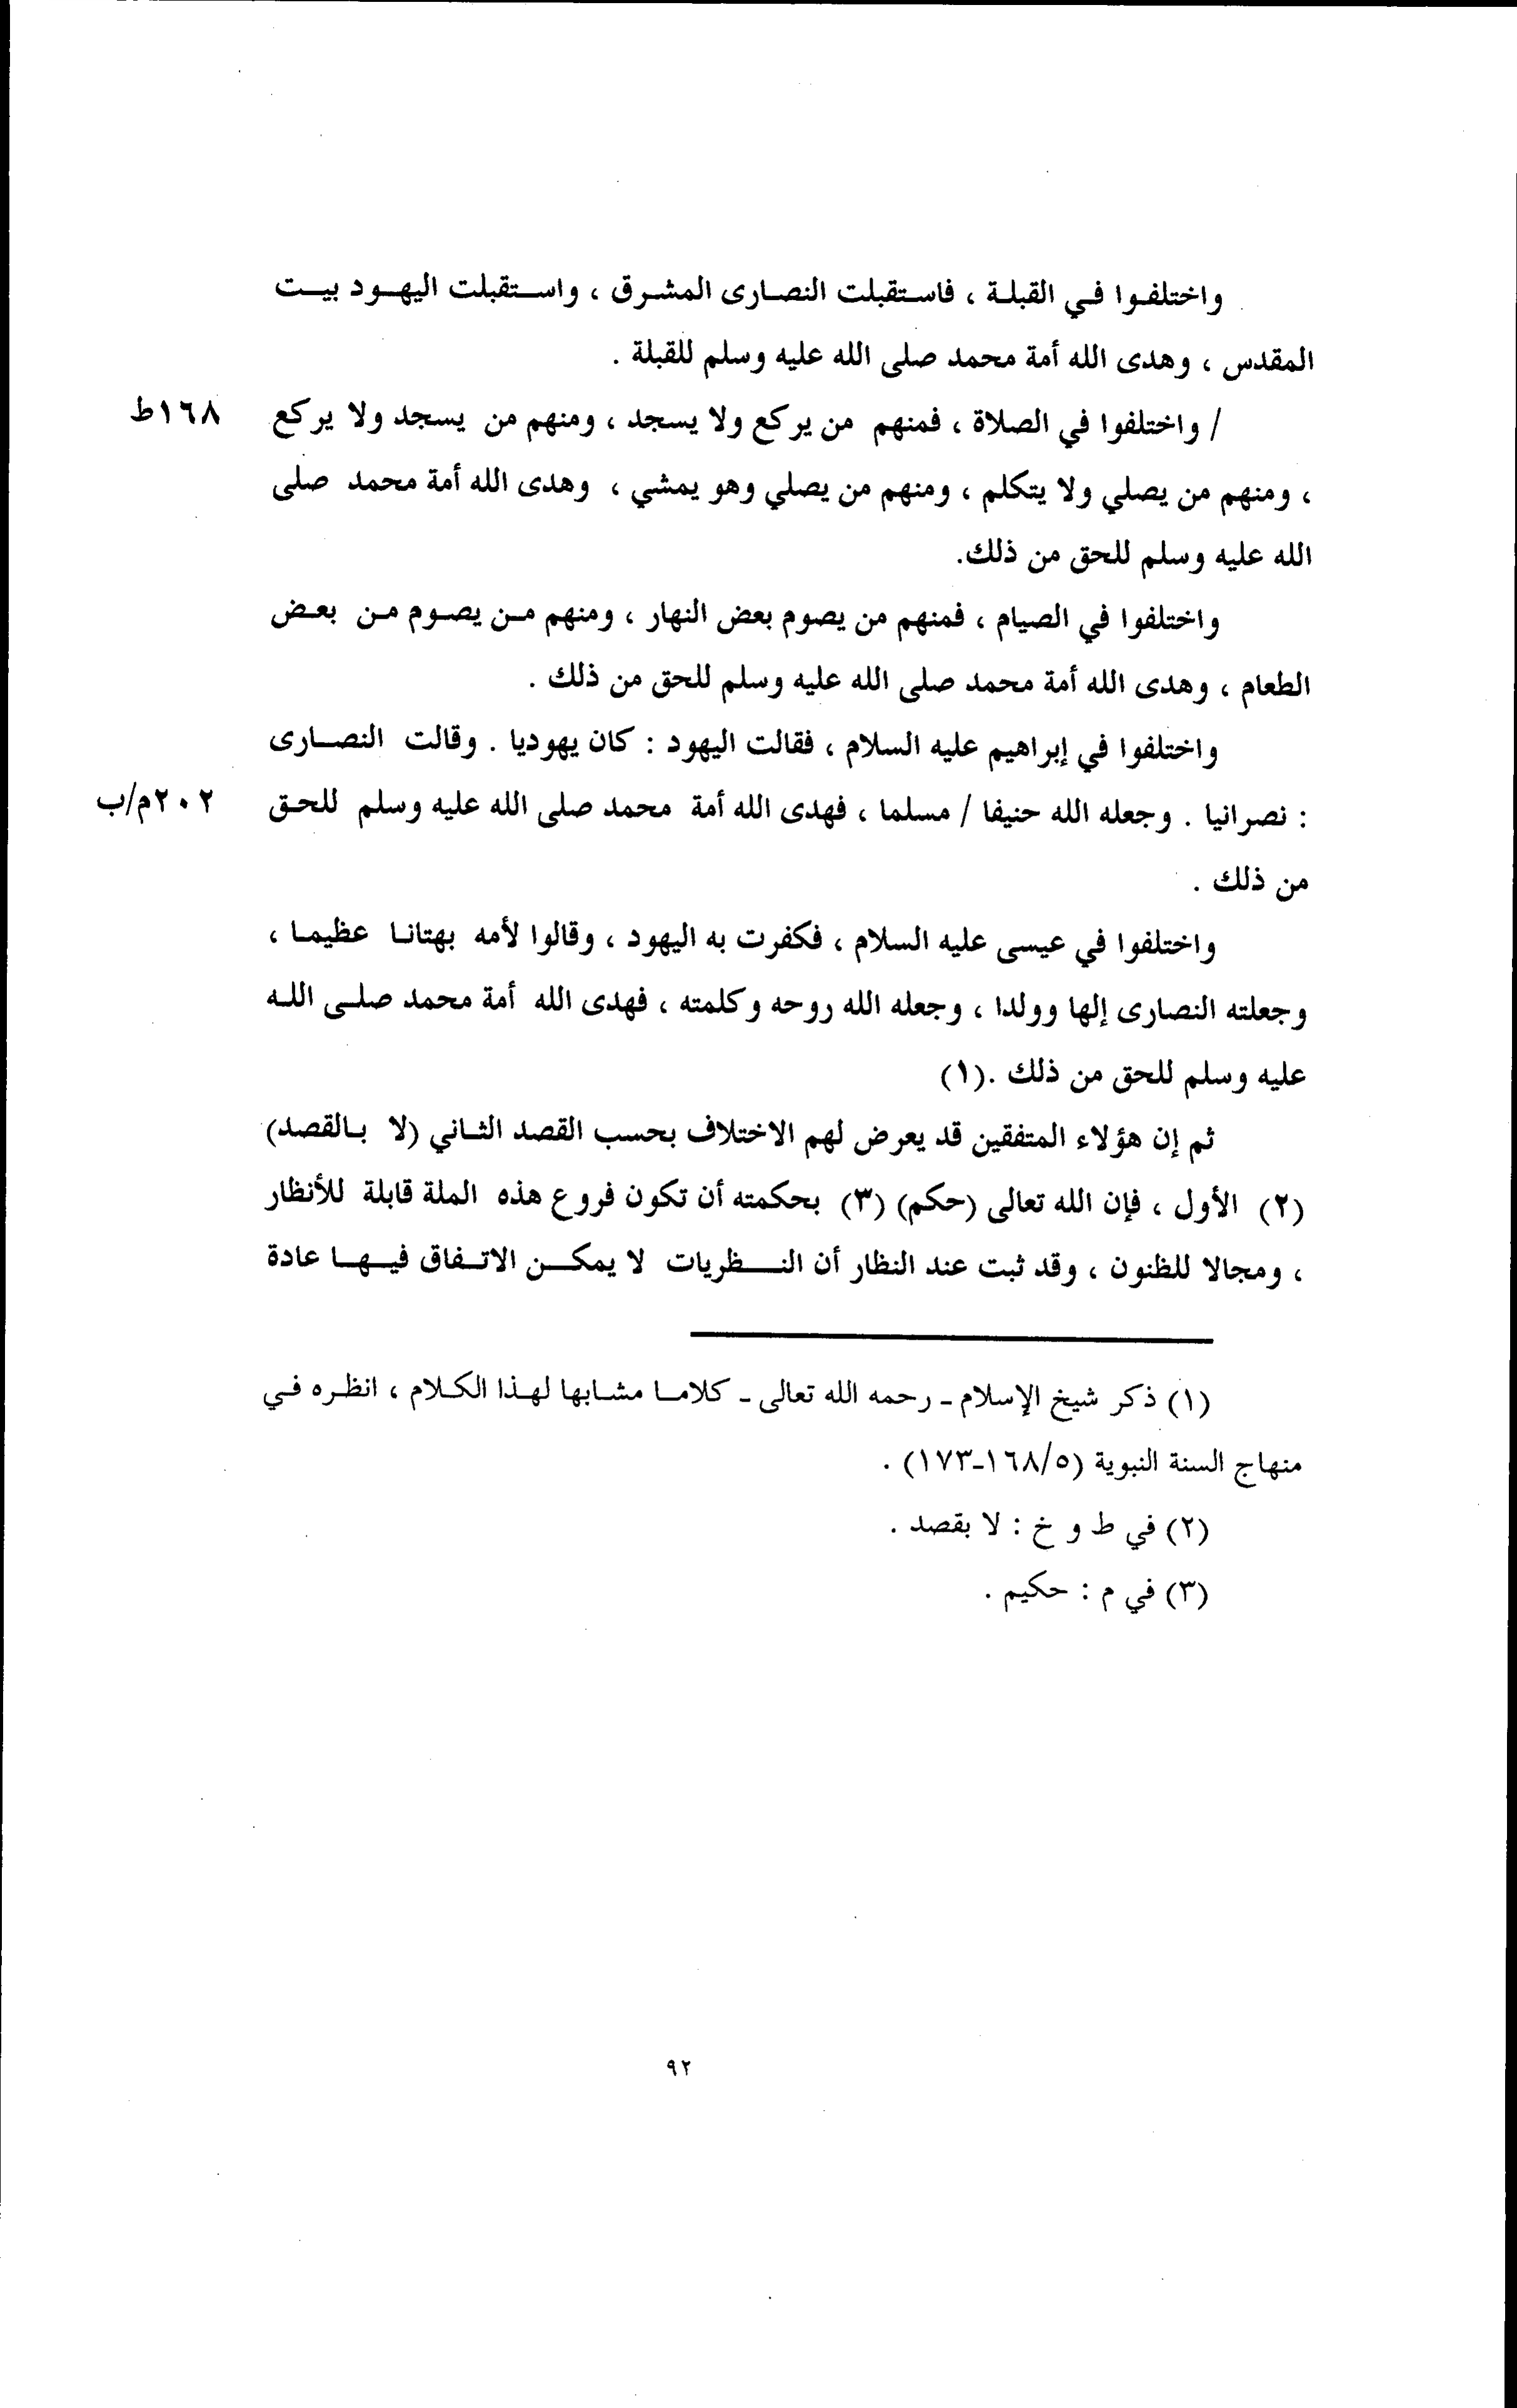 واختلفوا في القبلة ، فاستقبلت النصارى المشرق ، واستقبلت اليهود بيت
المقدس ، وهدى الله أمة محمد صلى الله عليه وسلم للقبلة .
/ واختلفوا في الصلاة ، فمنهم من يركع ولا يسجد ، ومنهم من يسجد ولا يركع ١٦٨ط
، ومنهم من يصلي ولا يتكلم ، ومنهم من يصلي وهو يمشي ، وهدى الله أمة محمد صلى
الله عليه وسلم للحق من ذلك.
واختلفوا في الصيام ، فمنهم من يصوم بعض النهار ، ومنهم من يصوم من بعض
الطعام ، وهدى الله أمة محمد صلى الله عليه وسلم للحق من ذلك .
واختلفوا في إبراهيم عليه السلام ، فقالت اليهود : كان يهوديا . وقالت النصارى
: نصرانيا . وجعله الله حنيفا / مسلما ، فهدى الله أمة محمد صلى الله عليه وسلم للحق ٢٠٢م/ب
من ذلك .
واختلفوا في عيسى عليه السلام ، فكفرت به اليهود ، وقالوا لأمه بهتانا عظيما ،
وجعلته النصارى إلها وولدا ، وجعله الله روحه وكلمته ، فهدى الله أمة محمد صلى الله
عليه وسلم للحق من ذلك .(١)
ثم إن هؤلاء المتفقين قد يعرض لهم الاختلاف بحسب القصد الثاني (لا بالقصد)
(٢) الأول ، فإن الله تعالى (حكم) (٣) بحكمته أن تكون فروع هذه الملة قابلة للأنظار
، ومجالا للظنون ، وقد ثبت عند النظار أن النظريات لا يمكن الاتفاق فيها عادة
(١) ذكر شيخ الإسلام - رحمه الله تعالى - كلاما مشابها لهذا الكلام ، انظره في
منهاج السنة النبوية (٥/١٦٨-١٧٣) .
(٢) في ط و خ : لا بقصد .
(٣) في م : حكيم .
٩٢